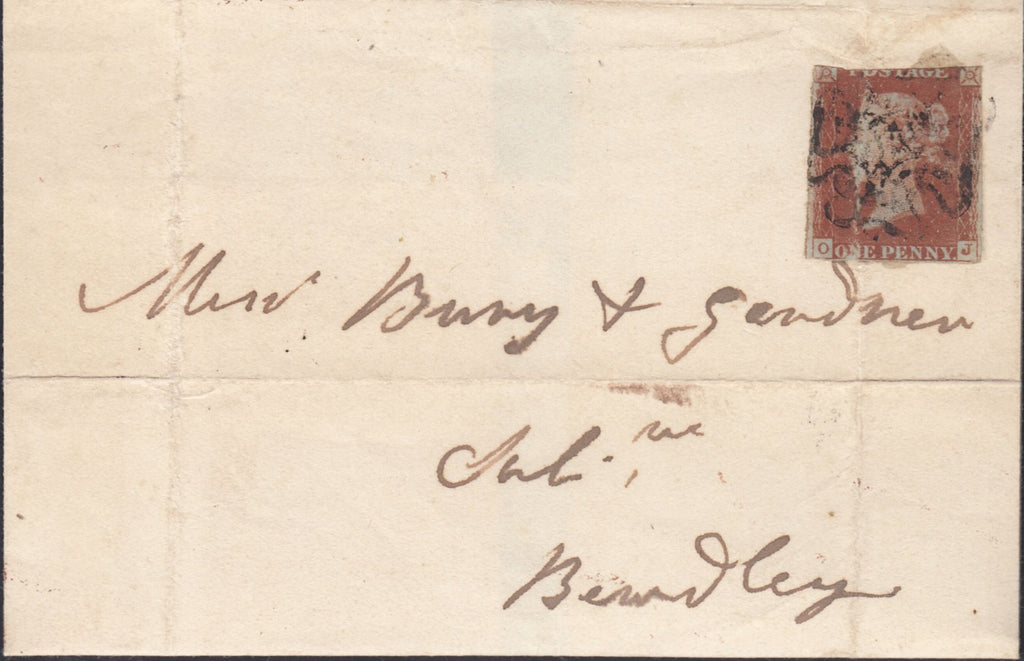 POSTAGE
O ONE PENNY. J
Messrs Bury & Gardner
Solrs
Bewdley